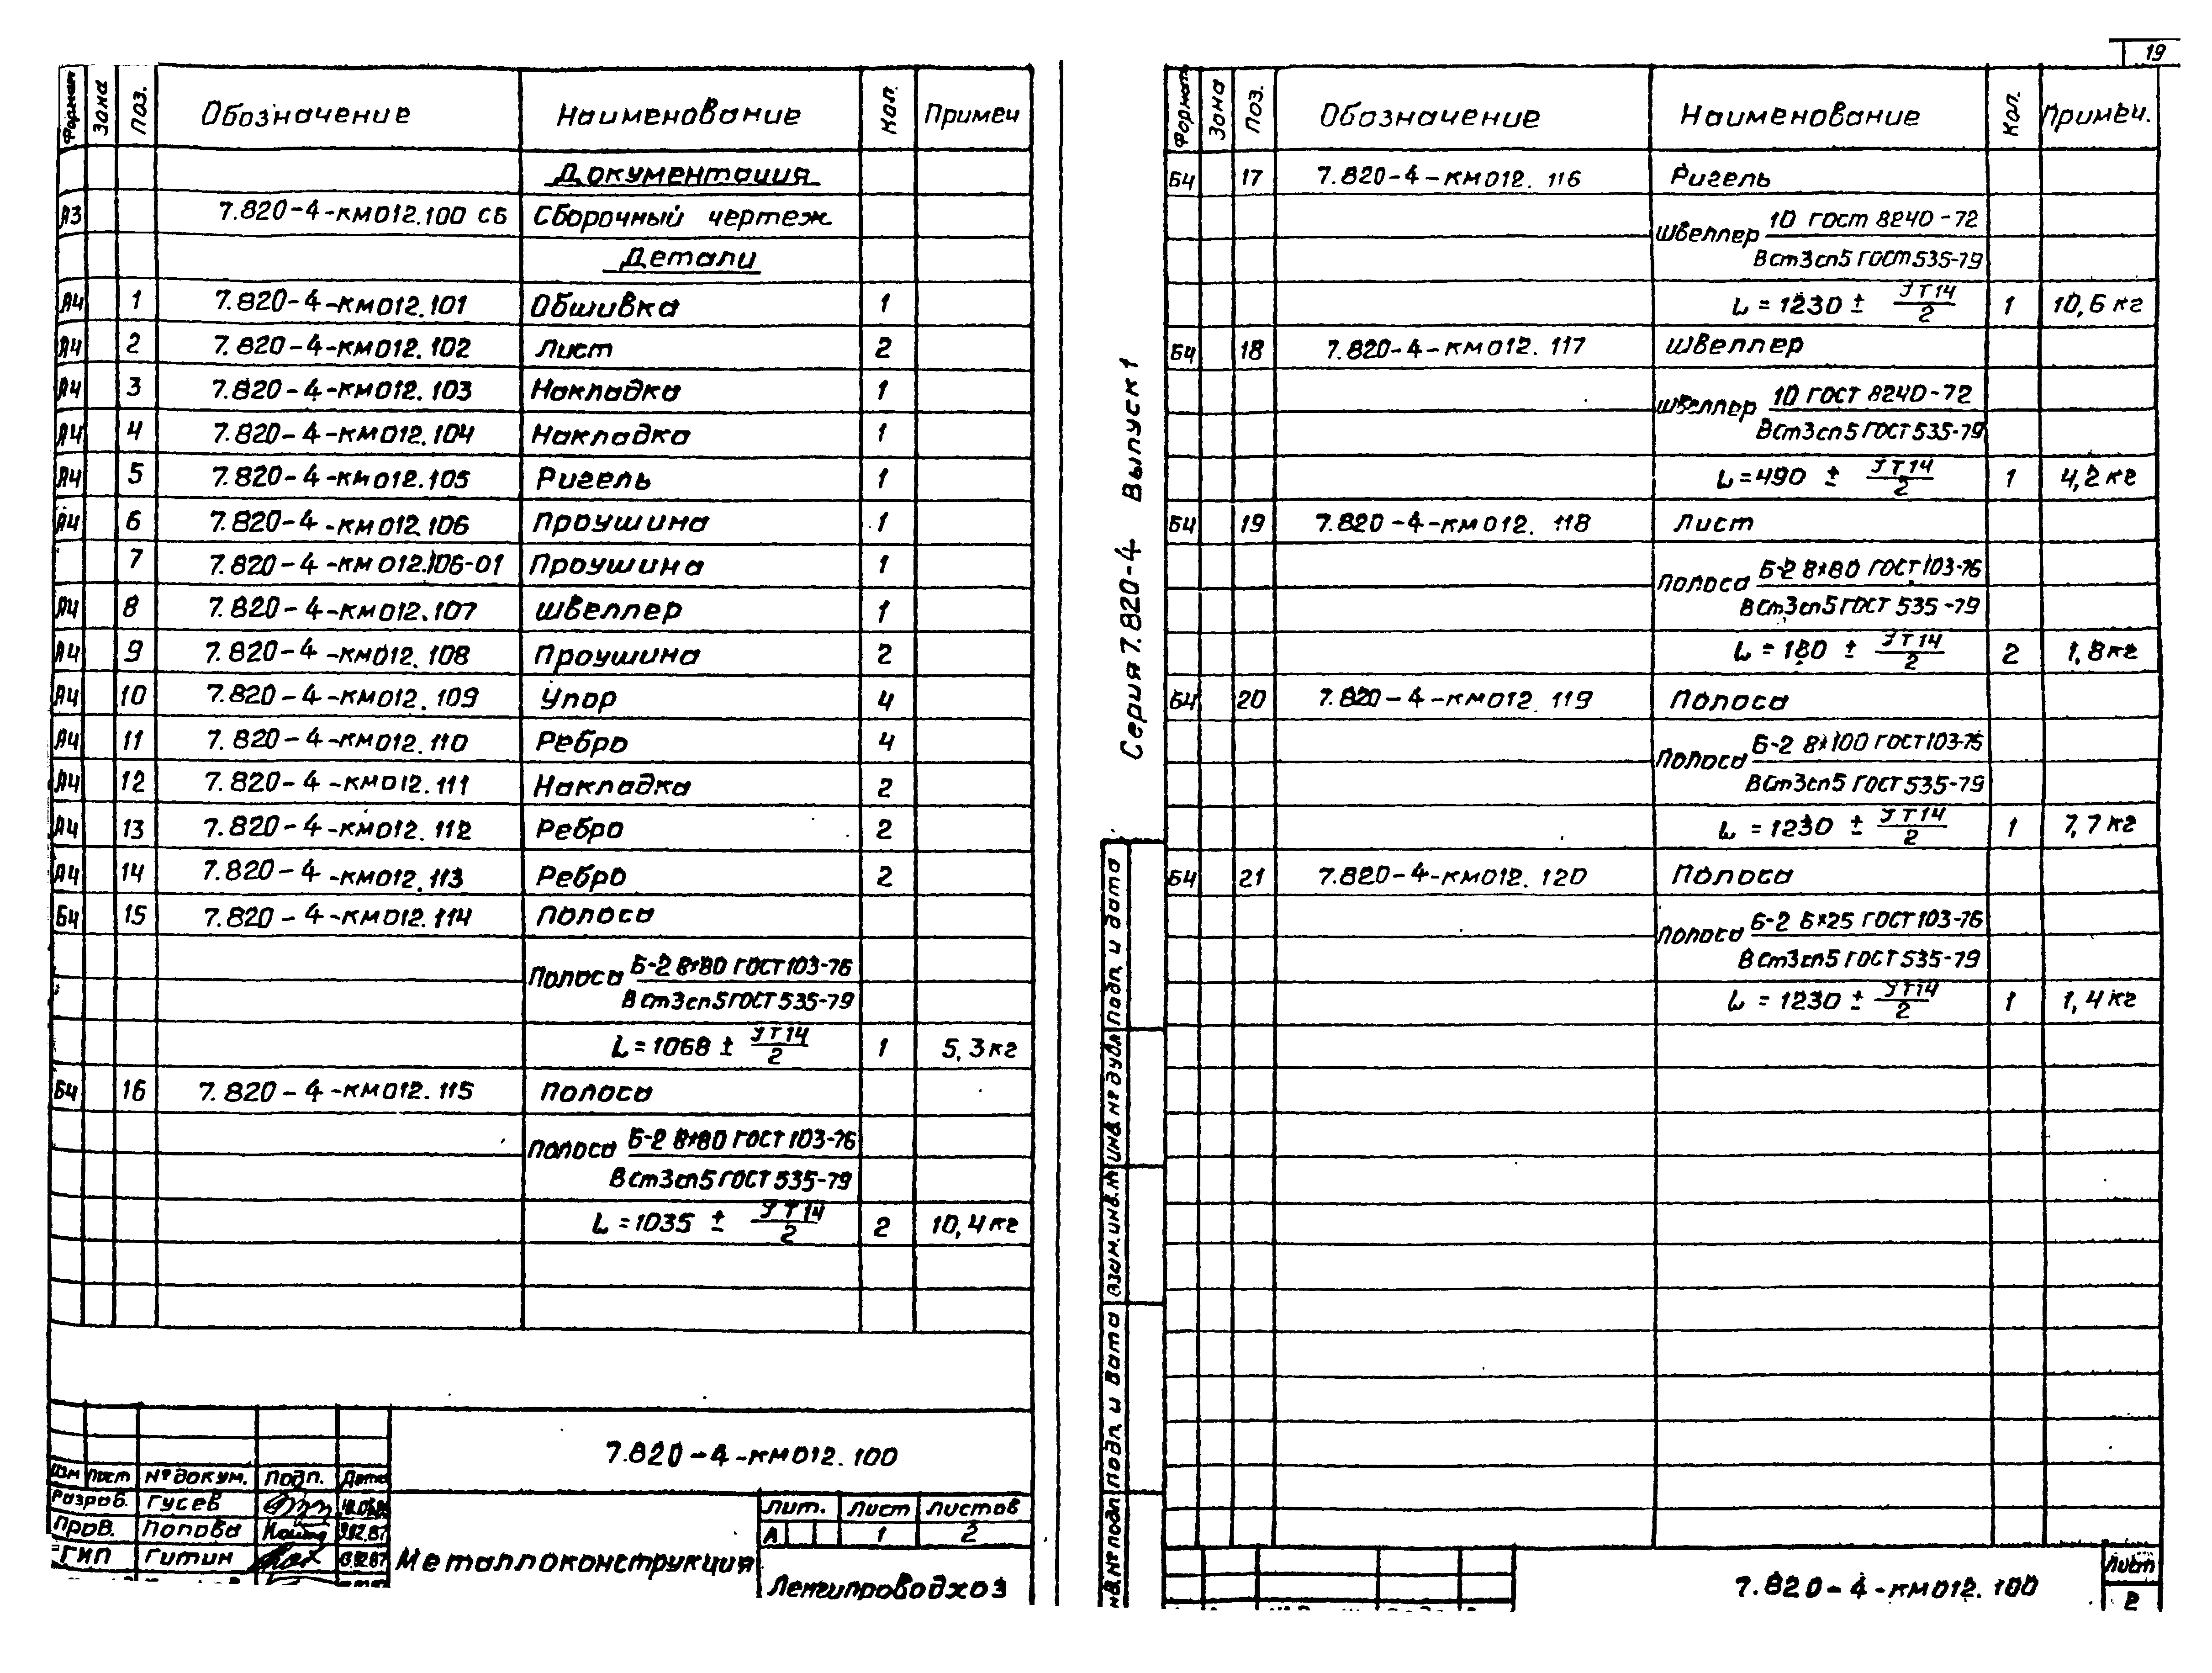 Формат Зона Поз. Обозначение Наименование Кол. Примеч
Документация
А3 7.820-4-КМ012.100 СБ Сборочный чертеж
Детали
А4 1 7.820-4-КМ012.101 Обшивка 1
А4 2 7.820-4-КМ012.102 Лист 2
А4 3 7.820-4-КМ012.103 Накладка 1
А4 4 7.820-4-КМ012.104 Накладка 1
А4 5 7.820-4-КМ012.105 Ригель 1
А4 6 7.820-4-КМ012.106 Проушина 1
7 7.820-4-КМ012.106-01 Проушина 1
А4 8 7.820-4-КМ012.107 Швеллер 1
А4 9 7.820-4-КМ012.108 Проушина 2
А4 10 7.820-4-КМ012.109 Упор 4
А4 11 7.820-4-КМ012.110 Ребро 4
А4 12 7.820-4-КМ012.111 Накладка 2
А4 13 7.820-4-КМ012.112 Ребро 2
А4 14 7.820-4-КМ012.113 Ребро 2
Б4 15 7.820-4-КМ012.114 Полоса
Полоса Б-2 8×80 ГОСТ 103-76
ВСт3сп5 ГОСТ 535-79
L=1068 ± JT14/2 1 5,3 кг
Б4 16 7.820-4-КМ012.115 Полоса
Полоса Б-2 8×80 ГОСТ 103-76
ВСт3сп5 ГОСТ 535-79
L=1035 ± JT14/2 2 10,4 кг
7.820-4-КМ012.100
Изм Лист № докум. Подп. Дата
Разраб. Гусев
Пров. Попова
ГИП Гитин
Металлоконструкция
Лит. Лист Листов
А 1 2
Ленгипроводхоз
19
Серия 7.820-4 Выпуск 1
Формат Зона Поз. Обозначение Наименование Кол. Примеч.
Б4 17 7.820-4-КМ012.116 Ригель
Швеллер 10 ГОСТ 8240-72
ВСт3сп5 ГОСТ 535-79
L=1230 ± JT14/2 1 10,6 кг
Б4 18 7.820-4-КМ012.117 Швеллер
Швеллер 10 ГОСТ 8240-72
ВСт3сп5 ГОСТ 535-79
L=490 ± JT14/2 1 4,2 кг
Б4 19 7.820-4-КМ012.118 Лист
Полоса Б-2 8×80 ГОСТ 103-76
ВСт3сп5 ГОСТ 535-79
L=180 ± JT14/2 2 1,8 кг
Б4 20 7.820-4-КМ012.119 Полоса
Полоса Б-2 8×100 ГОСТ 103-76
ВСт3сп5 ГОСТ 535-79
L=1230 ± JT14/2 1 7,7 кг
Б4 21 7.820-4-КМ012.120 Полоса
Полоса Б-2 6×25 ГОСТ 103-76
ВСт3сп5 ГОСТ 535-79
L=1230 ± JT14/2 1 1,4 кг
Подп. и дата
Инв. № дубл.
Взам. инв. №
Подп. и дата
Инв. № подл
7.820-4-КМ012.100
Лист
2